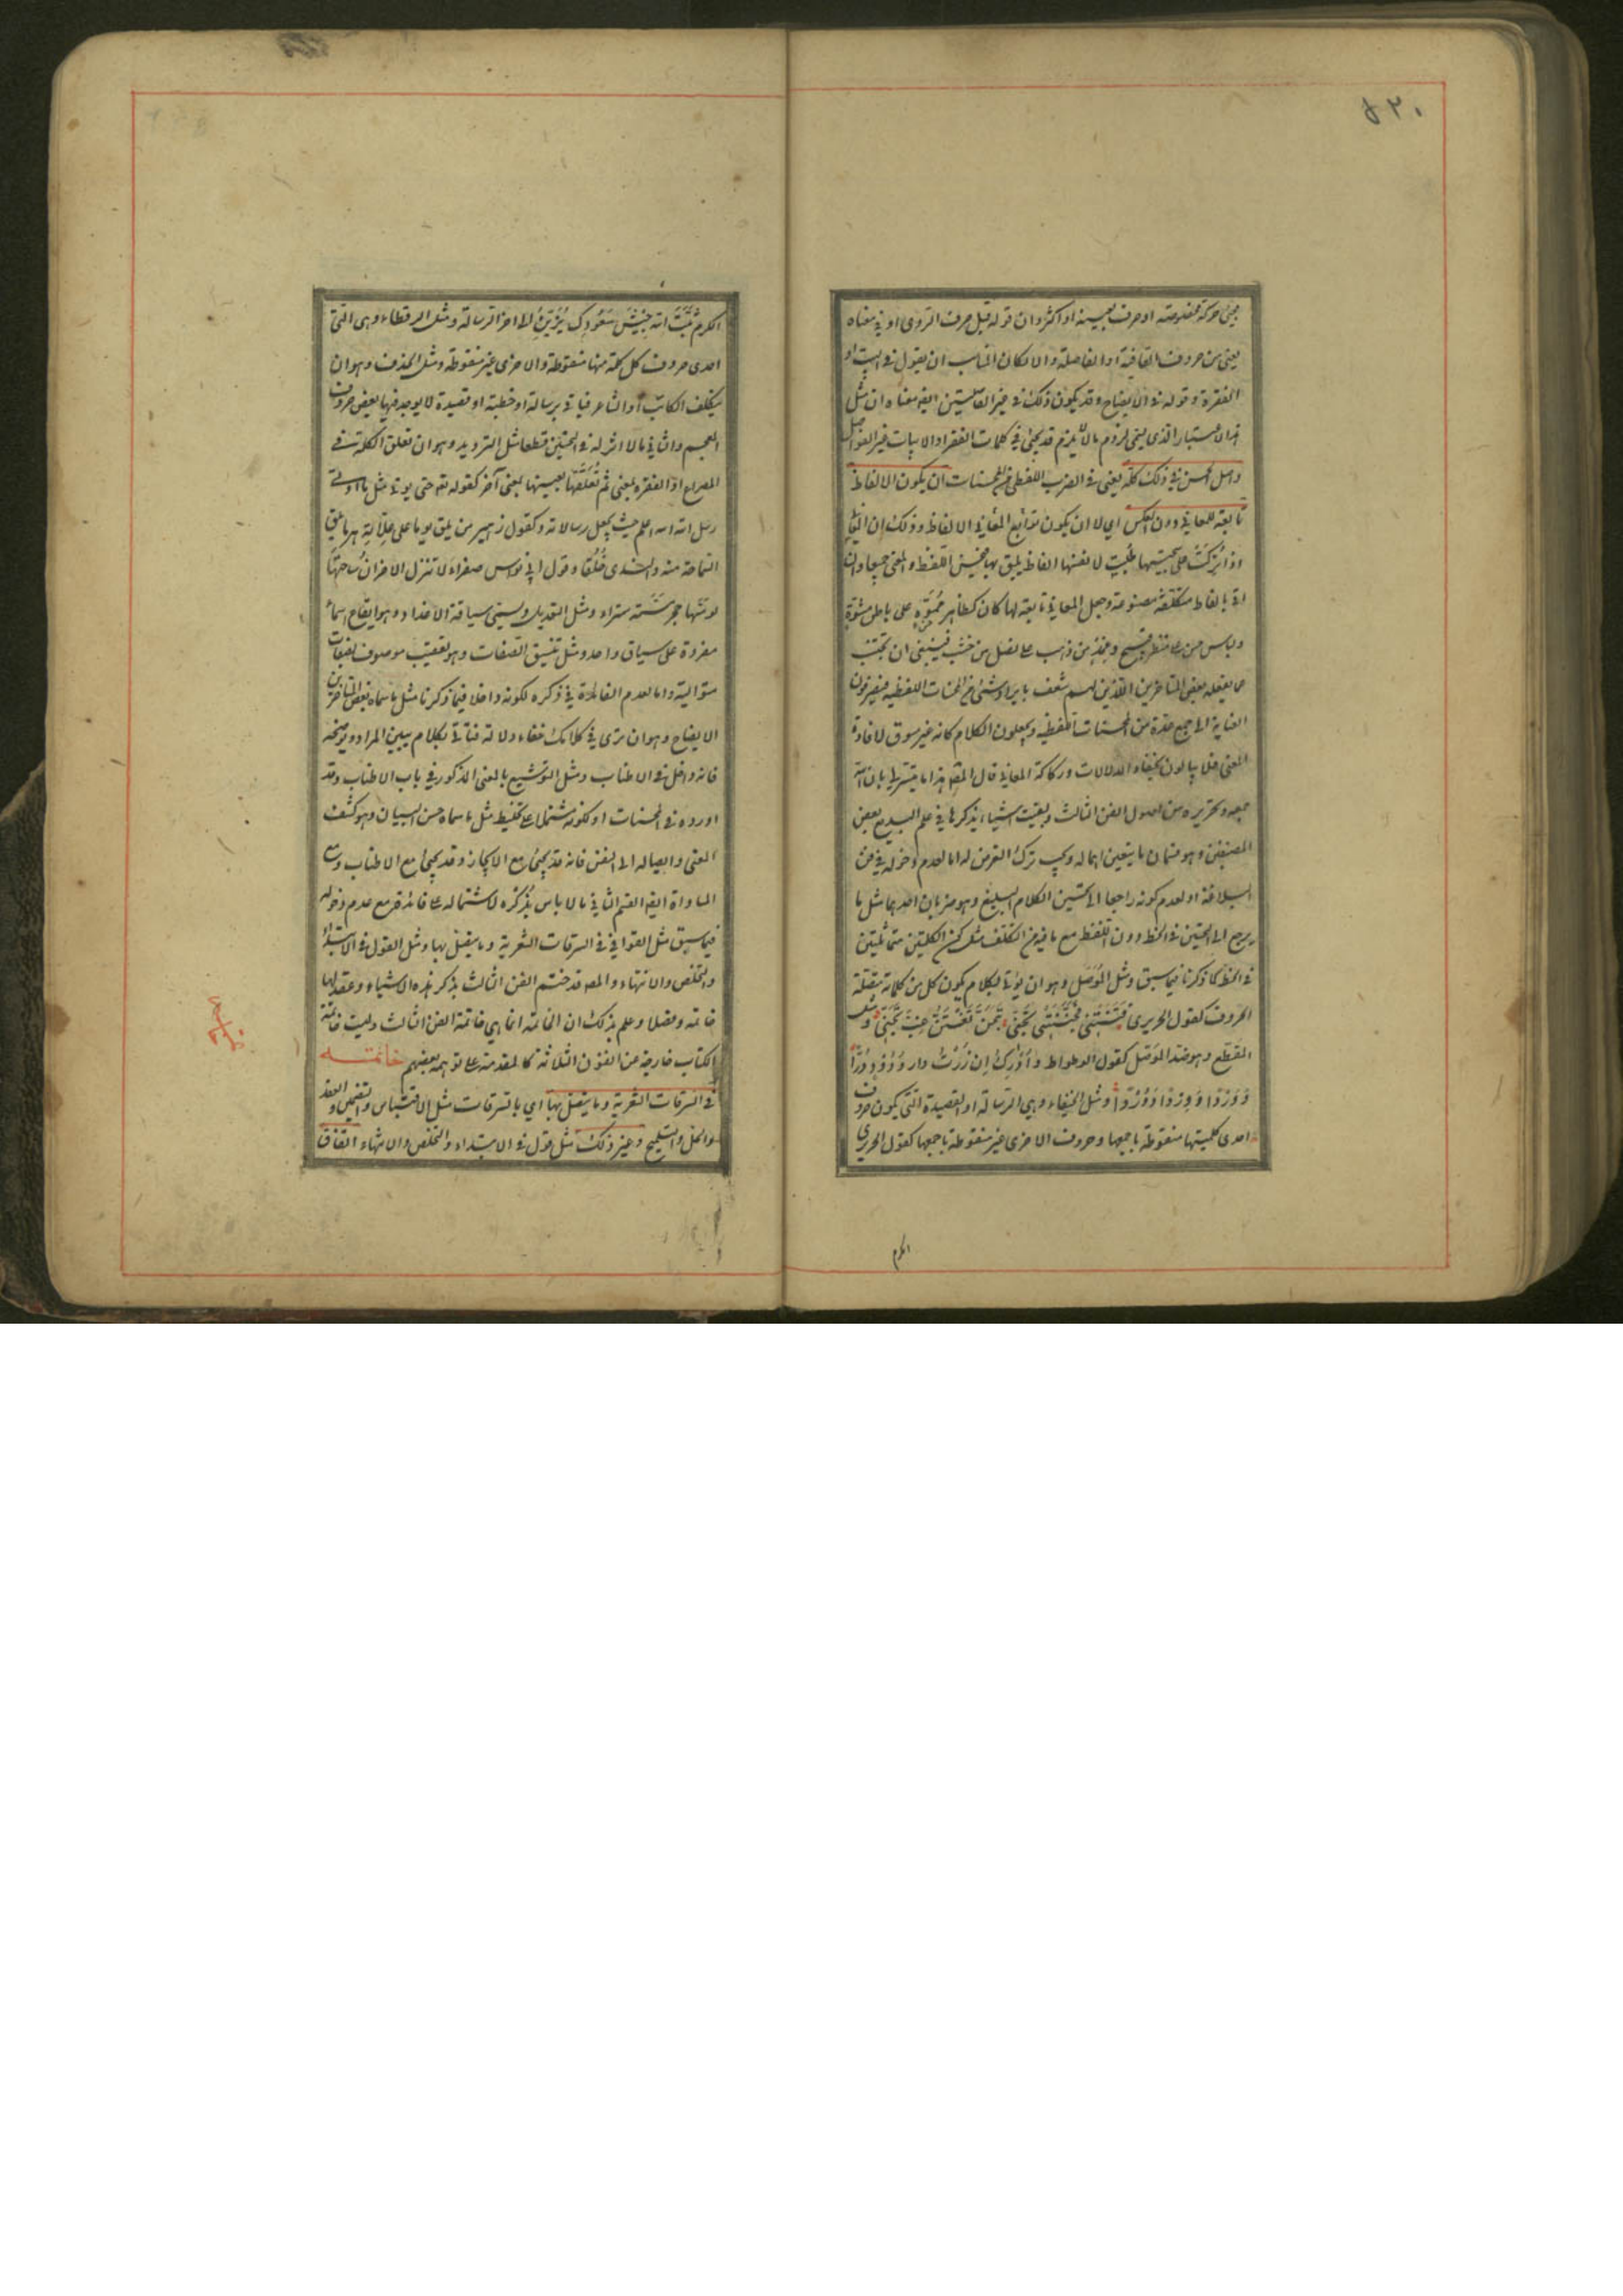 ٥٢٠
مجيئ حركة مخصوصة او حرف بعينه او اكثر وان قوله قبل حرف الروي او في معناه
يعني من حروف القافية او الفاصلة والا لكان المناسب ان يقول في البيت او
الفقرة وقوله في الايضاح وقد يكون ذلك في غير الفاصلتين ايضا معناه ان مثل
هذا الاعتبار الذي يسمى لزوم ما لا يلزم قد يجيئ في كلمات الفقر او الابيات غير الفواصل
واصل الحسن في ذلك كله يعني في الضرب اللفظي من المحسنات ان يكون الالفاظ
تابعة للمعاني دون العكس اي لا ان يكون توابع المعاني الالفاظ وذلك ان المعاني
اذا تركت على سجيتها طلبت لانفسها الفاظا يليق بها فيحسن اللفظ والمعنى جميعا وان
اتي بالفاظ متكلفة مصنوعة وجعل المعاني تابعة لها كان كظاهر مموه على باطن مشوه
ولباس حسن على منظر قبيح وغمد من ذهب على نصل من خشب فينبغي ان يجتنب
عما يفعله بعض المتاخرين الذين لهم شعف بايراد شئ من المحسنات اللفظية فيصرفون
العناية الى جمع عدة من المحسنات اللفظية ويجعلون الكلام كانه غير مسوق لافادة
المعنى فلا يبالون بخفاء الدلالات وركاكة المعاني قال المص هذا ما تيسر لي باذن الله
جمعه وتحريره من اصول الفن الثالث وبقيت اشياء يذكرها في علم البديع بعض
المصنفين وهو قسمان ما يتعين اهماله ويجب ترك التعرض له اما لعدم دخوله في فن
البلاغة او لعدم كونه راجعا الى تحسين الكلام البليغ وهو ضربان احدهما مثل ما
يرجع الى التحسين في الخط دون اللفظ مع ما فيه من التكلف مثل كون الكلمتين متماثلتين
في الخط كما ذكرنا فيما سبق ومثل الموصل وهو ان يؤتى بكلام يكون كل من كلماته متصلة
الحروف كقول الحريري فتنتني فجننتني تجني بتجن تفتن غب تجني ومثل
المقطع وهو ضد الموصل كقول الوطواط وادرك ان زرت دار ودود درا
وردا ووردا ووردا ومثل الخيفاء وهي الرسالة او القصيدة التي يكون حروف
احدى كلمتيها منقوطة باجمعها وحروف الاخرى غير منقوطة باجمعها كقول الحريري
الكرم
الكرم ثبت الله جيش سعودك يزين الى اخر الرسالة ومثل الرقطاء وهي التي
احدى حروف كل كلمة منها منقوطة والاخرى غير منقوطة ومثل الحذف وهو ان
يتكلف الكاتب او الشاعر فياتي برسالة او خطبة او قصيدة لا يوجد فيها بعض حروف
المعجم والثاني ما لا اثر له في التحسين قطعا مثل الترديد وهو ان تعلق الكلمة في
المصراع او الفقرة بمعنى ثم تعلقها بعينها بمعنى آخر كقوله تعه حتى نوتى مثل ما اوتي
رسل الله الله اعلم حيث يجعل رسالاته وكقول زهير من يلق يوما على علاته هرما يلق
السماحة منه والندى خلقا وقول ابي نواس صفراء لا تنزل الاحزان ساحتها
لو مسها حجر مسته سراء ومثل التعديد ويسمى سياقة الاعداد وهو ايقاع اسماء
مفردة على سياق واحد ومثل تنسيق الصفات وهو تعقيب موصوف بصفات
متوالية واما لعدم الفائدة في ذكره لكونه داخلا فيما ذكرنا مثل ما سماه بعض المتاخرين
الايضاح وهو ان ترى في كلامك خفاء دلالة فتاتي بكلام يبين المراد ويوضحه
فانه داخل في الاطناب ومثل التوشيع بالمعنى المذكور في باب الاطناب وقد
اورده في المحسنات او لكونه مشتملا على تخليط مثل ما سماه حسن البيان وهو كشف
المعنى وايصاله الى النفس فانه قد يجيئ مع الايجاز وقد يجيئ مع الاطناب ومع
المساواة ايضا القسم الثاني ما لا باس بذكره لاشتماله على فائدة مع عدم دخوله
فيما سبق مثل القول في في السرقات الشعرية وما يتصل بها ومثل القول في الابتداء
والتخلص والانتهاء والمصه قد ختم الفن الثالث بذكر هذه الاشياء وعقد لها
خاتمة وفصلا وعلم بذلك ان الخاتمة انما هي خاتمة الفن الثالث وليست خاتمة
الكتاب خارجة عن الفنون الثلاثة كالمقدمة على ما توهمه بعضهم خاتمـــــة
في السرقات الشعرية وما يتصل بها اي بالسرقات مثل الاقتباس والتضمين والعقد
والحل والتلميح وغير ذلك مثل قول في الابتداء والتخلص والانتهاء اتفاق